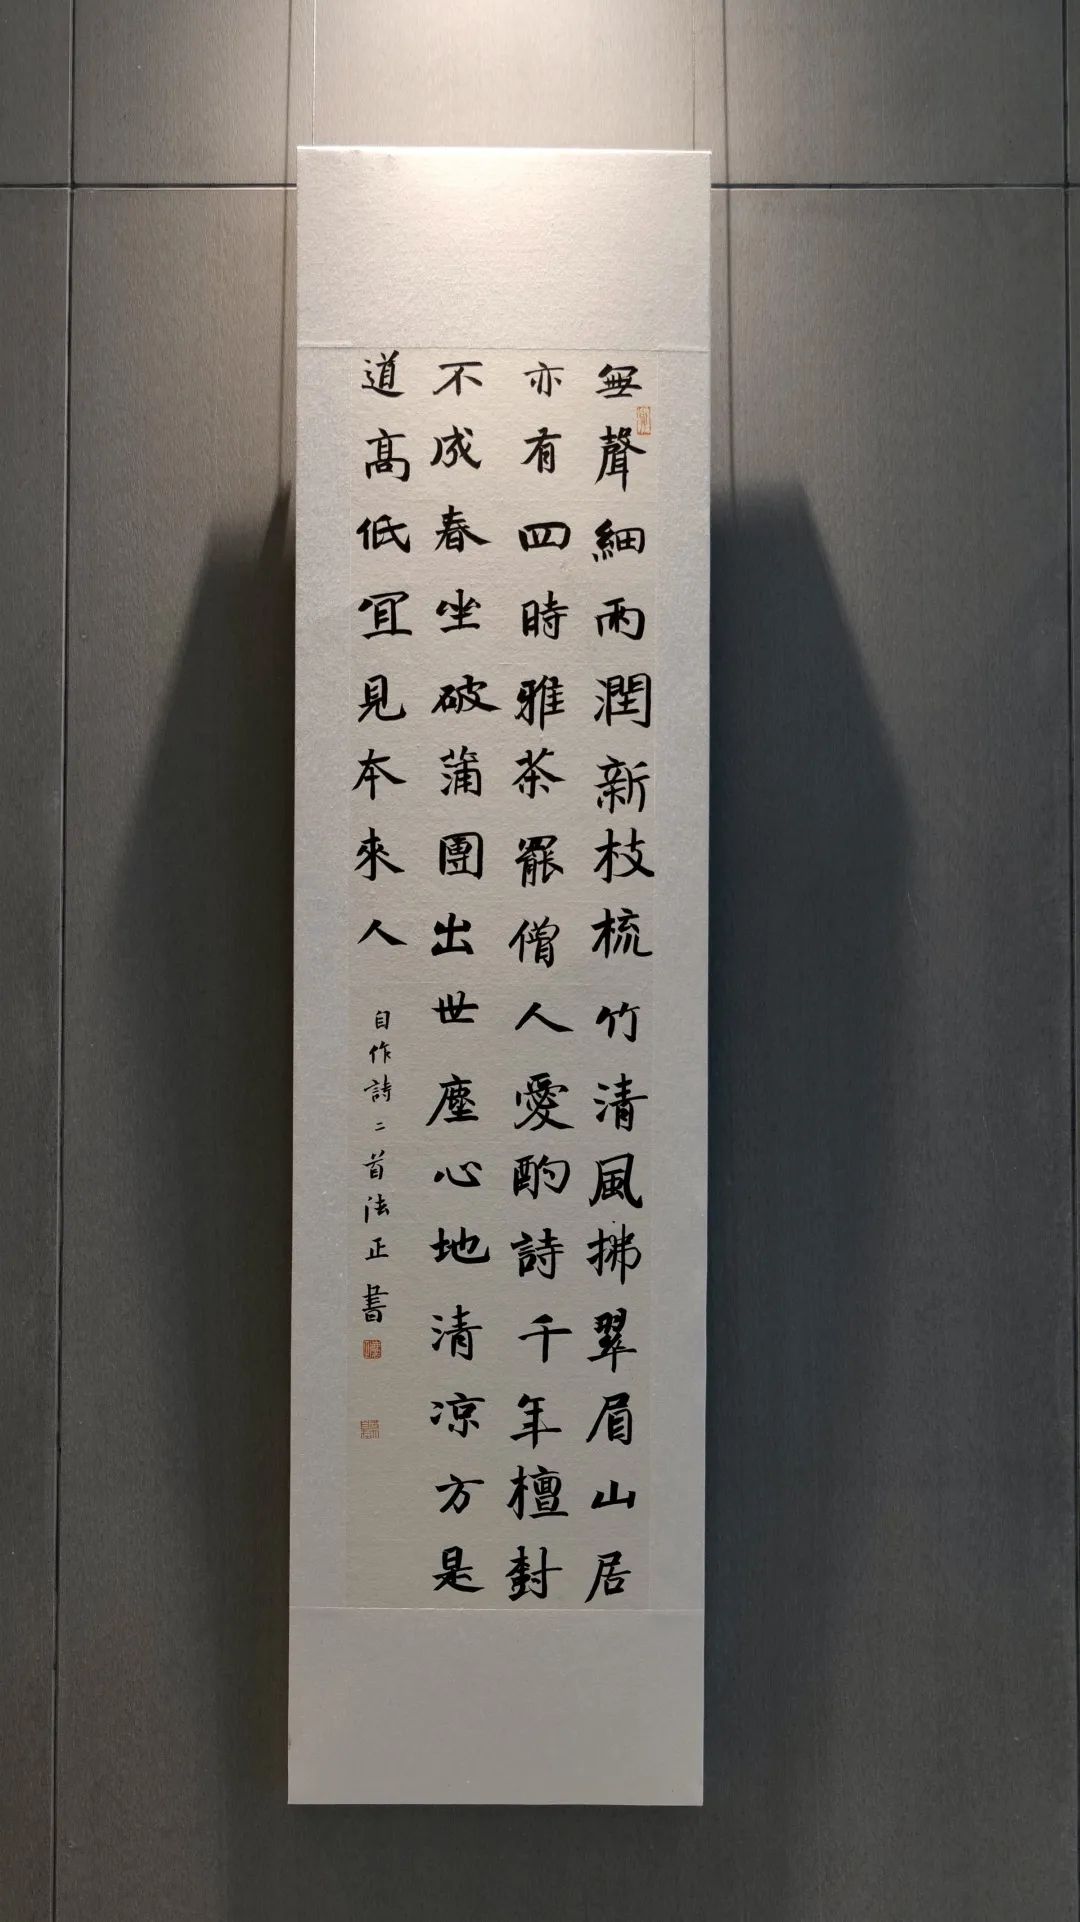 無聲細雨潤新枝梳竹清風拂翠眉山居
亦有四時雅茶罷僧人愛酌詩千年檀封
不成春坐破蒲團出世塵心地清涼方是
道高低冝見本來人
自作詩二首法正書